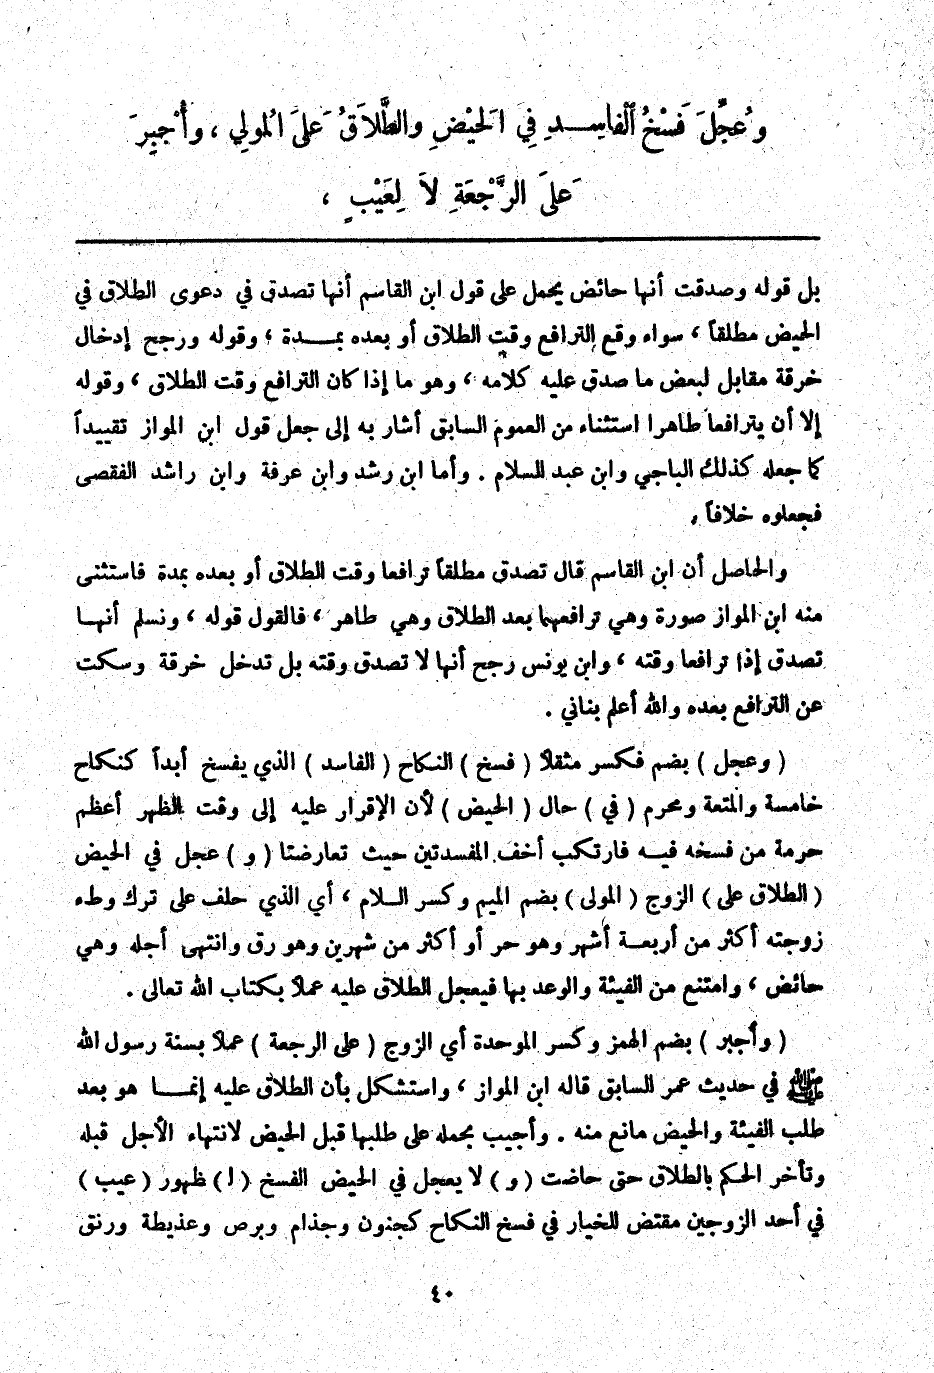 وَعُجِّلَ فَسْخُ الْفَاسِـدِ فِي الْحَيْضِ والطَّلَاقُ عَلَى الْمُولِي ، وأُجْبِرَ
عَلَى الرَّجْعَةِ لَا لِعَيْبٍ ،
بل قوله وصدقت أنها حائض يحمل على قول ابن القاسم أنها تصدق في دعوى الطلاق في
الحيض مطلقاً ، سواء وقع الترافع وقت الطلاق أو بعده بمـدة ، وقوله ورجح إدخال
خرقة مقابل لبعض ما صدق عليه كلامه ، وهو ما إذا كان الترافع وقت الطلاق ، وقوله
إلا أن يترافعا طاهرا استثناء من العموم السابق أشار به إلى جعل قول ابن المواز تقييداً
كما جعله كذلك الباجي وابن عبد السلام . وأما ابن رشد وابن عرفة وابن راشد القفصى
فجعلوه خلافاً ,
والحاصل أن ابن القاسم قال تصدق مطلقاً ترافعا وقت الطلاق أو بعده بمدة فاستثنى
منه ابن المواز صورة وهي ترافعهما بعد الطلاق وهي طاهر ، فالقول قوله ، ونسلم أنهـا
تصدق إذا ترافعا وقته ، وابن يونس رجح أنها لا تصدق وقته بل تدخل خرقة وسكت
عن الترافع بعده والله أعلم بناني .
( وعجل ) بضم فكسر مثقلاً ( فسخ ) النكاح ( الفاسد ) الذي يفسخ أبداً كنكاح
خامسة والمتعة ومحرم ( في ) حال ( الحيض ) لأن الإقرار عليه إلى وقت الطهر أعظم
حرمة من فسخه فيـه فارتكب أخف المفسدتين حيث تعارضتا ( و ) عجل في الحيض
( الطلاق على ) الزوج ( المولى ) بضم الميم وكسر الـلام ، أي الذي حلف على ترك وطء
زوجته أكثر من أربعـة أشهر وهو حر أو أكثر من شهرين وهو رق وانتهى أجله وهي
حائض ، وامتنع من الفيئة والوعد بها فيعجل الطلاق عليه عملاً بكتاب الله تعالى .
( وأجبر ) بضم الهمز وكسر الموحدة أي الزوج ( على الرجعة ) عملاً بسنة رسول الله
ﷺ في حديث عمر السابق قاله ابن المواز ، واستشكل بأن الطلاق عليه إنمـا هو بعد
طلب الفيئة والحيض مانع منه . وأجيب بحمله على طلبها قبل الحيض لانتهاء الأجل قبله
وتأخر الحكم بالطلاق حتى حاضت ( و ) لا يعجل في الحيض الفسخ ( لـ ) ظهور ( عيب )
في أحد الزوجين مقتض للخيار في فسخ النكاح كجنون وجذام وبرص وعذيطة ورتق
٤٠